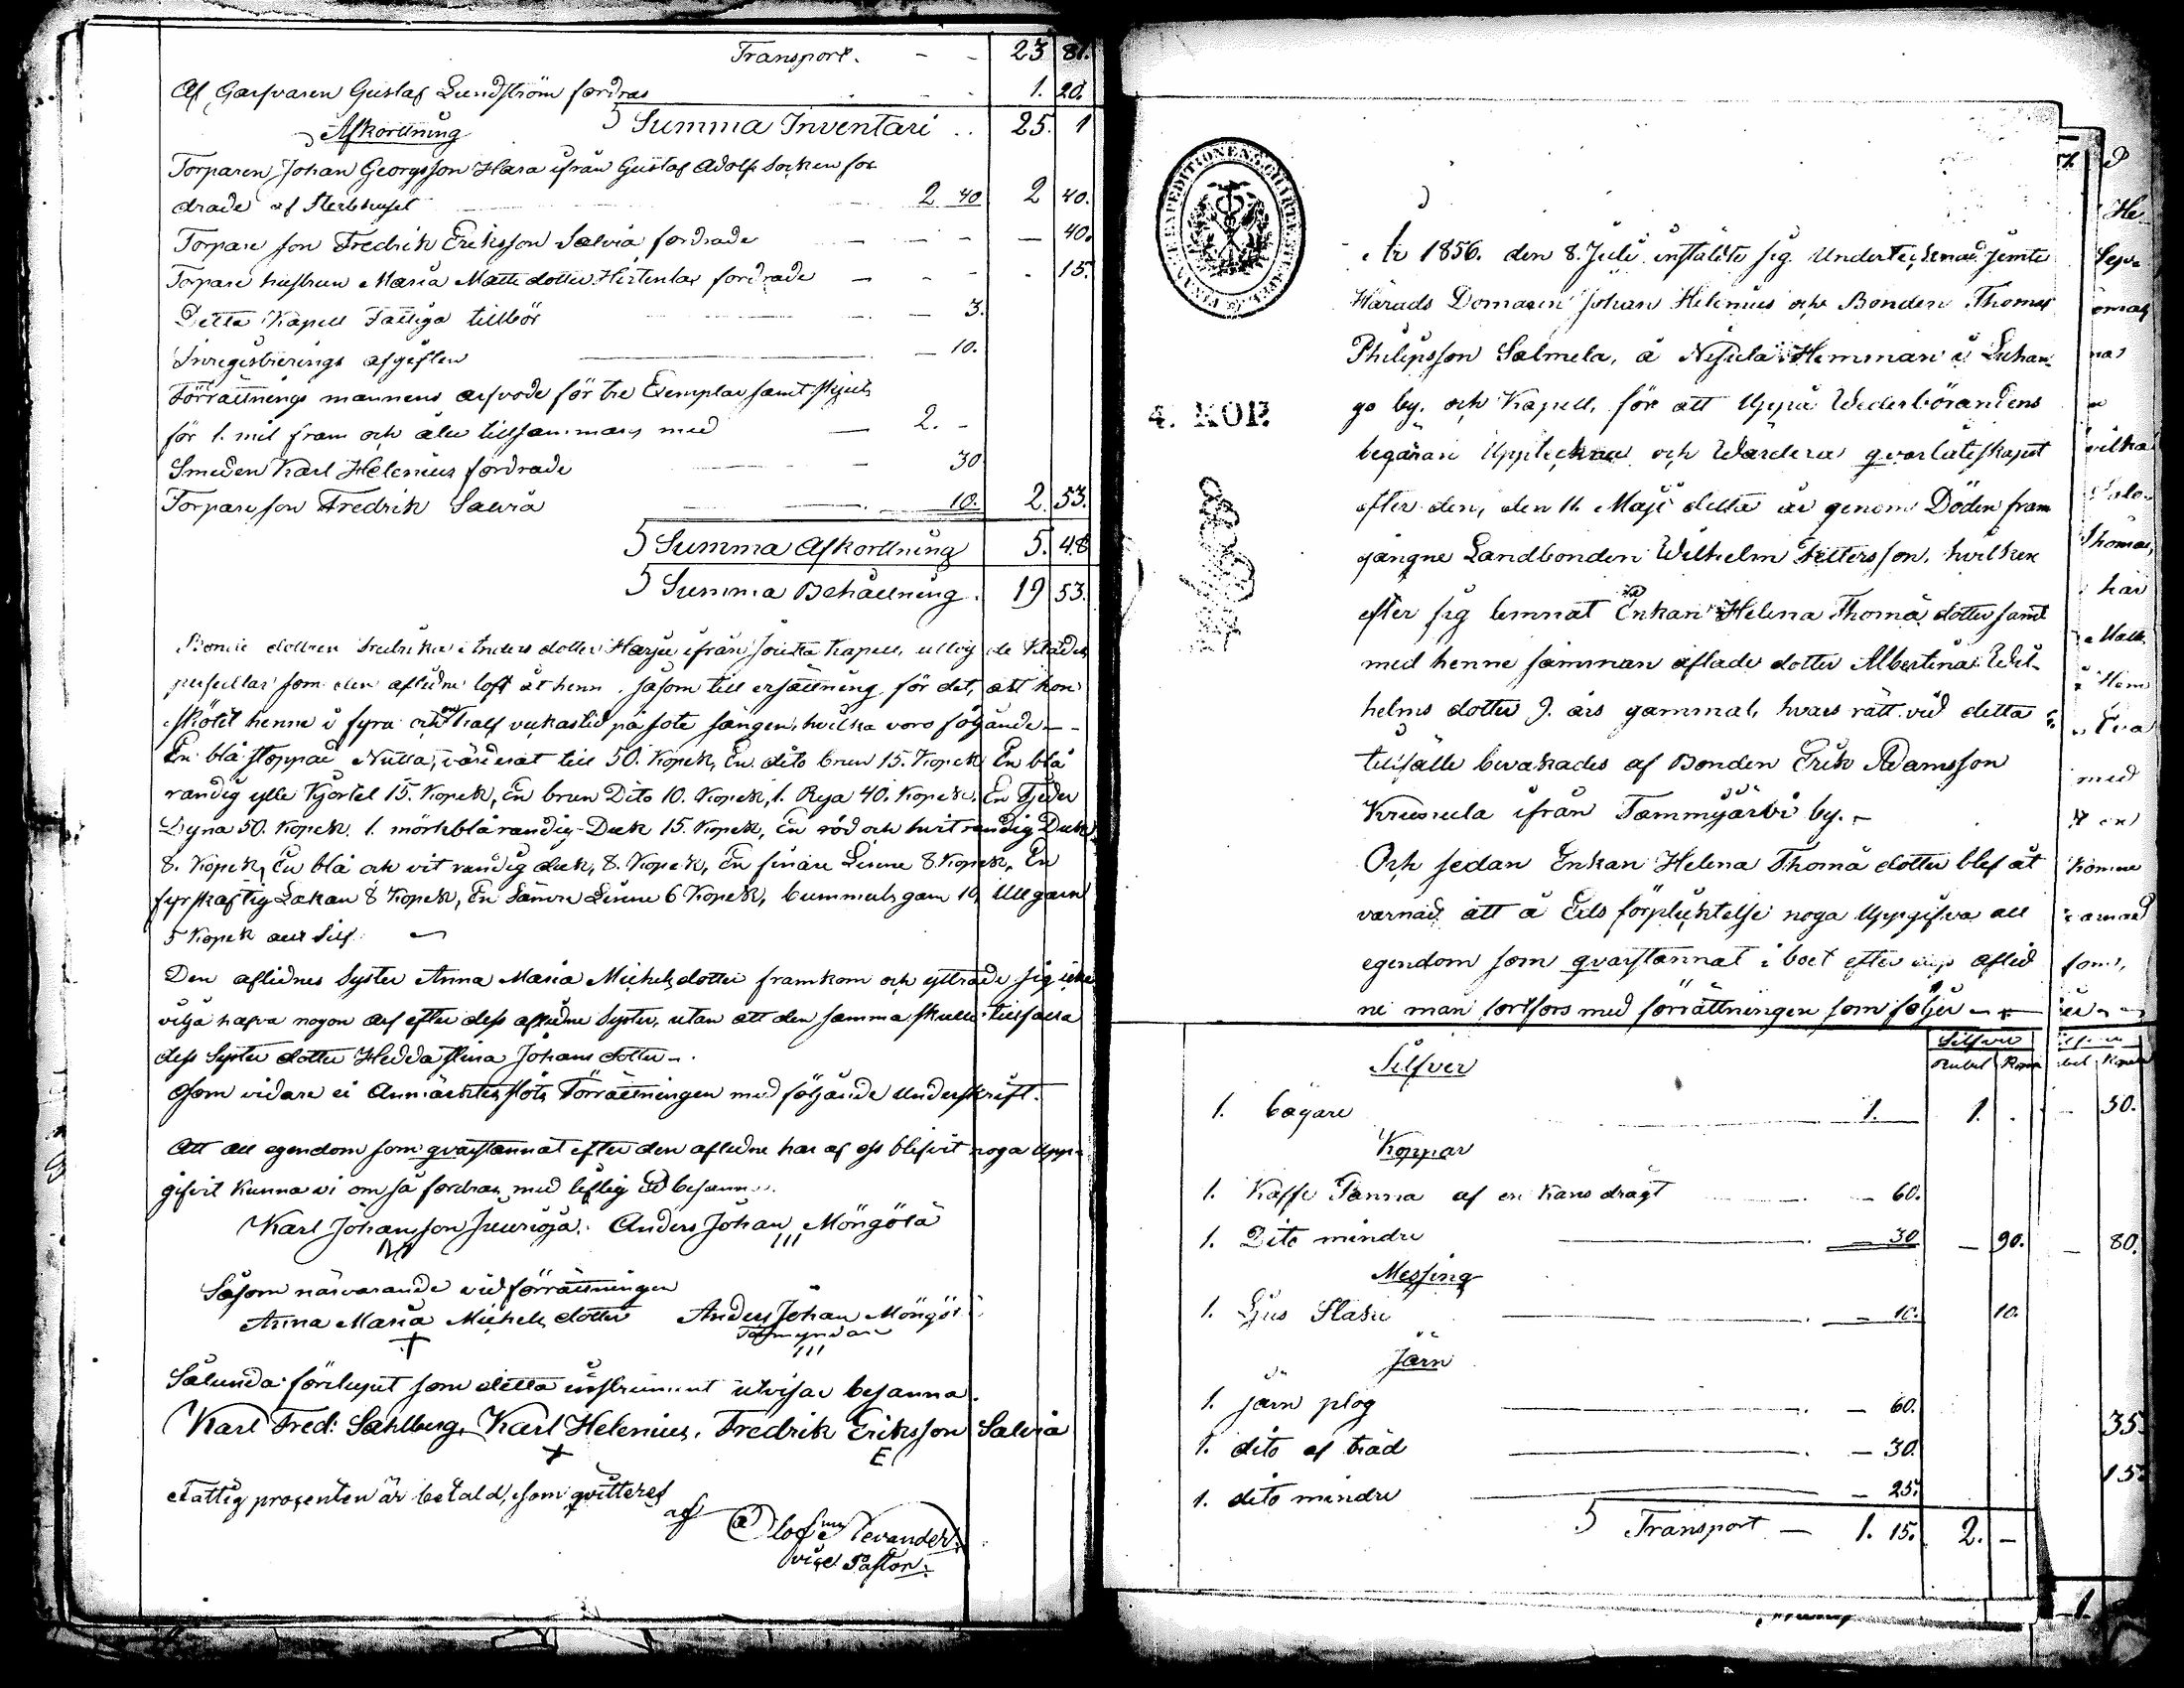 Transport. - - 23 81.
Af Garfvaren Gustaf Lundström fordras - - 1. 20.
Afkortning Summa Inventari .. 25. 1
Torparen Johan Georgsson Hara ifrån Gustaf Adolf Socken for
drade af Sterbhuset 2 40 2 40.
Torpare son Fredrik Eriksson Salvia fordrade - - - - 40.
Torpare hustrun Maria Matts dotter fordrade - - - - 15.
Detta Kapell Fattiga tillhör - 3.
Inregistrerings afgiften - 10.
Förrättnings mannens arfvode för tre Exemplar samt skjuts
för 1. mil fram och åter tillsammans med - 2. -
Smeden Karl Helenius fordrade - 30
Torpare son Fredrik Salvia 10. 2. 53.
Summa Afkortning 5. 48
Summa Behållning. 19 53.
dottren Fredrika Anders dotter Harju ifrån Joutsa Kapell, uttog de Kläder
persedlar som den aflidne loft åt henn, såsom till ersättning för det, att hon
skötit henne i fyra och en half veckas tid på sote sängen, hvilka voro följande -
En blå stoppad Nutta, värderat till 50. Kopek, En dito brun 15. Kopek En blå
randig ylle Kjortel 15. Kopek, En brun Dito 10. Kopek, 1. Rya 40. Kopek. En Fjeder
Dyna 50. Kopek. 1. mörkblå randig Duk 15. Kopek, En röd och hvit randig Duk
8. Kopek, En blå och vit randig duk, 8. Kopek, En finare Linne 8. Kopek, En
fyrskaftig Lakan 8 Kopek, En Sämre Linne 6 Kopek, bummuls garn 10, Ull garn
5 Kopek allt Silf.
Den aflidnes Syster Anna Maria Michels dotter framkom och yttrade sig icke
vilja hafva nogon arf efter dess aflidne Syster, utan att den samma skulle tillfalla
dess Syster dotter Hedda Stina Johans dotter -.
Som vidare ei Anmärktes, slöts Förrättningen med följande Underskrift.
Att all egendom som qvarstannat efter den aflidne har af oss blifvit noga Upp-
gifvit Kunna vi om så fordras med liflig Ed besanna.
Karl Johansson Juurioja. Anders Johan Möngölä
Såsom närvarande vid förrättningen
Anna Maria Michels dotter Anders Johan Möngölä
Förmyndare
Sålunda förelupit som detta instrument utvisar besanna.
Karl Fred: Sahlberg, Karl Helenius. Fredrik Eriksson Salvia
Fattig procenten är betald, som qvitteras
af Olof Levander.
vice Pastor.
FINANCE EXPEDITIONENS CHARTÆ STÄMPEL
4. KOP.
År 1856. den 8. Juli instälde sig Undertecknad jemte
Härads Domaren Johan Helenius och Bonden Thomas
Philipsson Salmela, å Nisula Hemman i Luhan-
go by. och Kapell, för att Uppå Wederbörandens
begäran Uppteckna och Wärdera qvarlåtskapet
efter den, den 11. Maji detta år genom Döden fram
gångne Landbonden Wilhelm Pettersson, hvilken
efter sig lemnat Enkan Helena Thomä dotter samt
med henne samman aflade dotter Albertina Wil-
helms dotter 9. års gammal, hvars rätt vid detta
tillfälle bevakades af Bonden Erik Adamsson
Kruusula ifrån Tammijärvi by. -
Och sedan Enkan Helena Thomä dotter blef åt
varnad att å Eds förpliktelse noga Uppgifva all
egendom som qvarstannat i boet efter aflid
ne man fortfors med förrättningen som följer -
Silfver
Rubel Kop
Silfver
1. bägare 1. 1. .
Koppar
1. Kaffe Panna af en Kans dragt - 60.
1. Dito mindre - 30 - 90.
Messing
1. Ljus Staku - 10. 10.
Järn
1. järn plog - 60.
1. dito af träd - 30.
1. dito mindre - 25.
Transport - 1. 15. 2. -
50.
80.
35.
15.